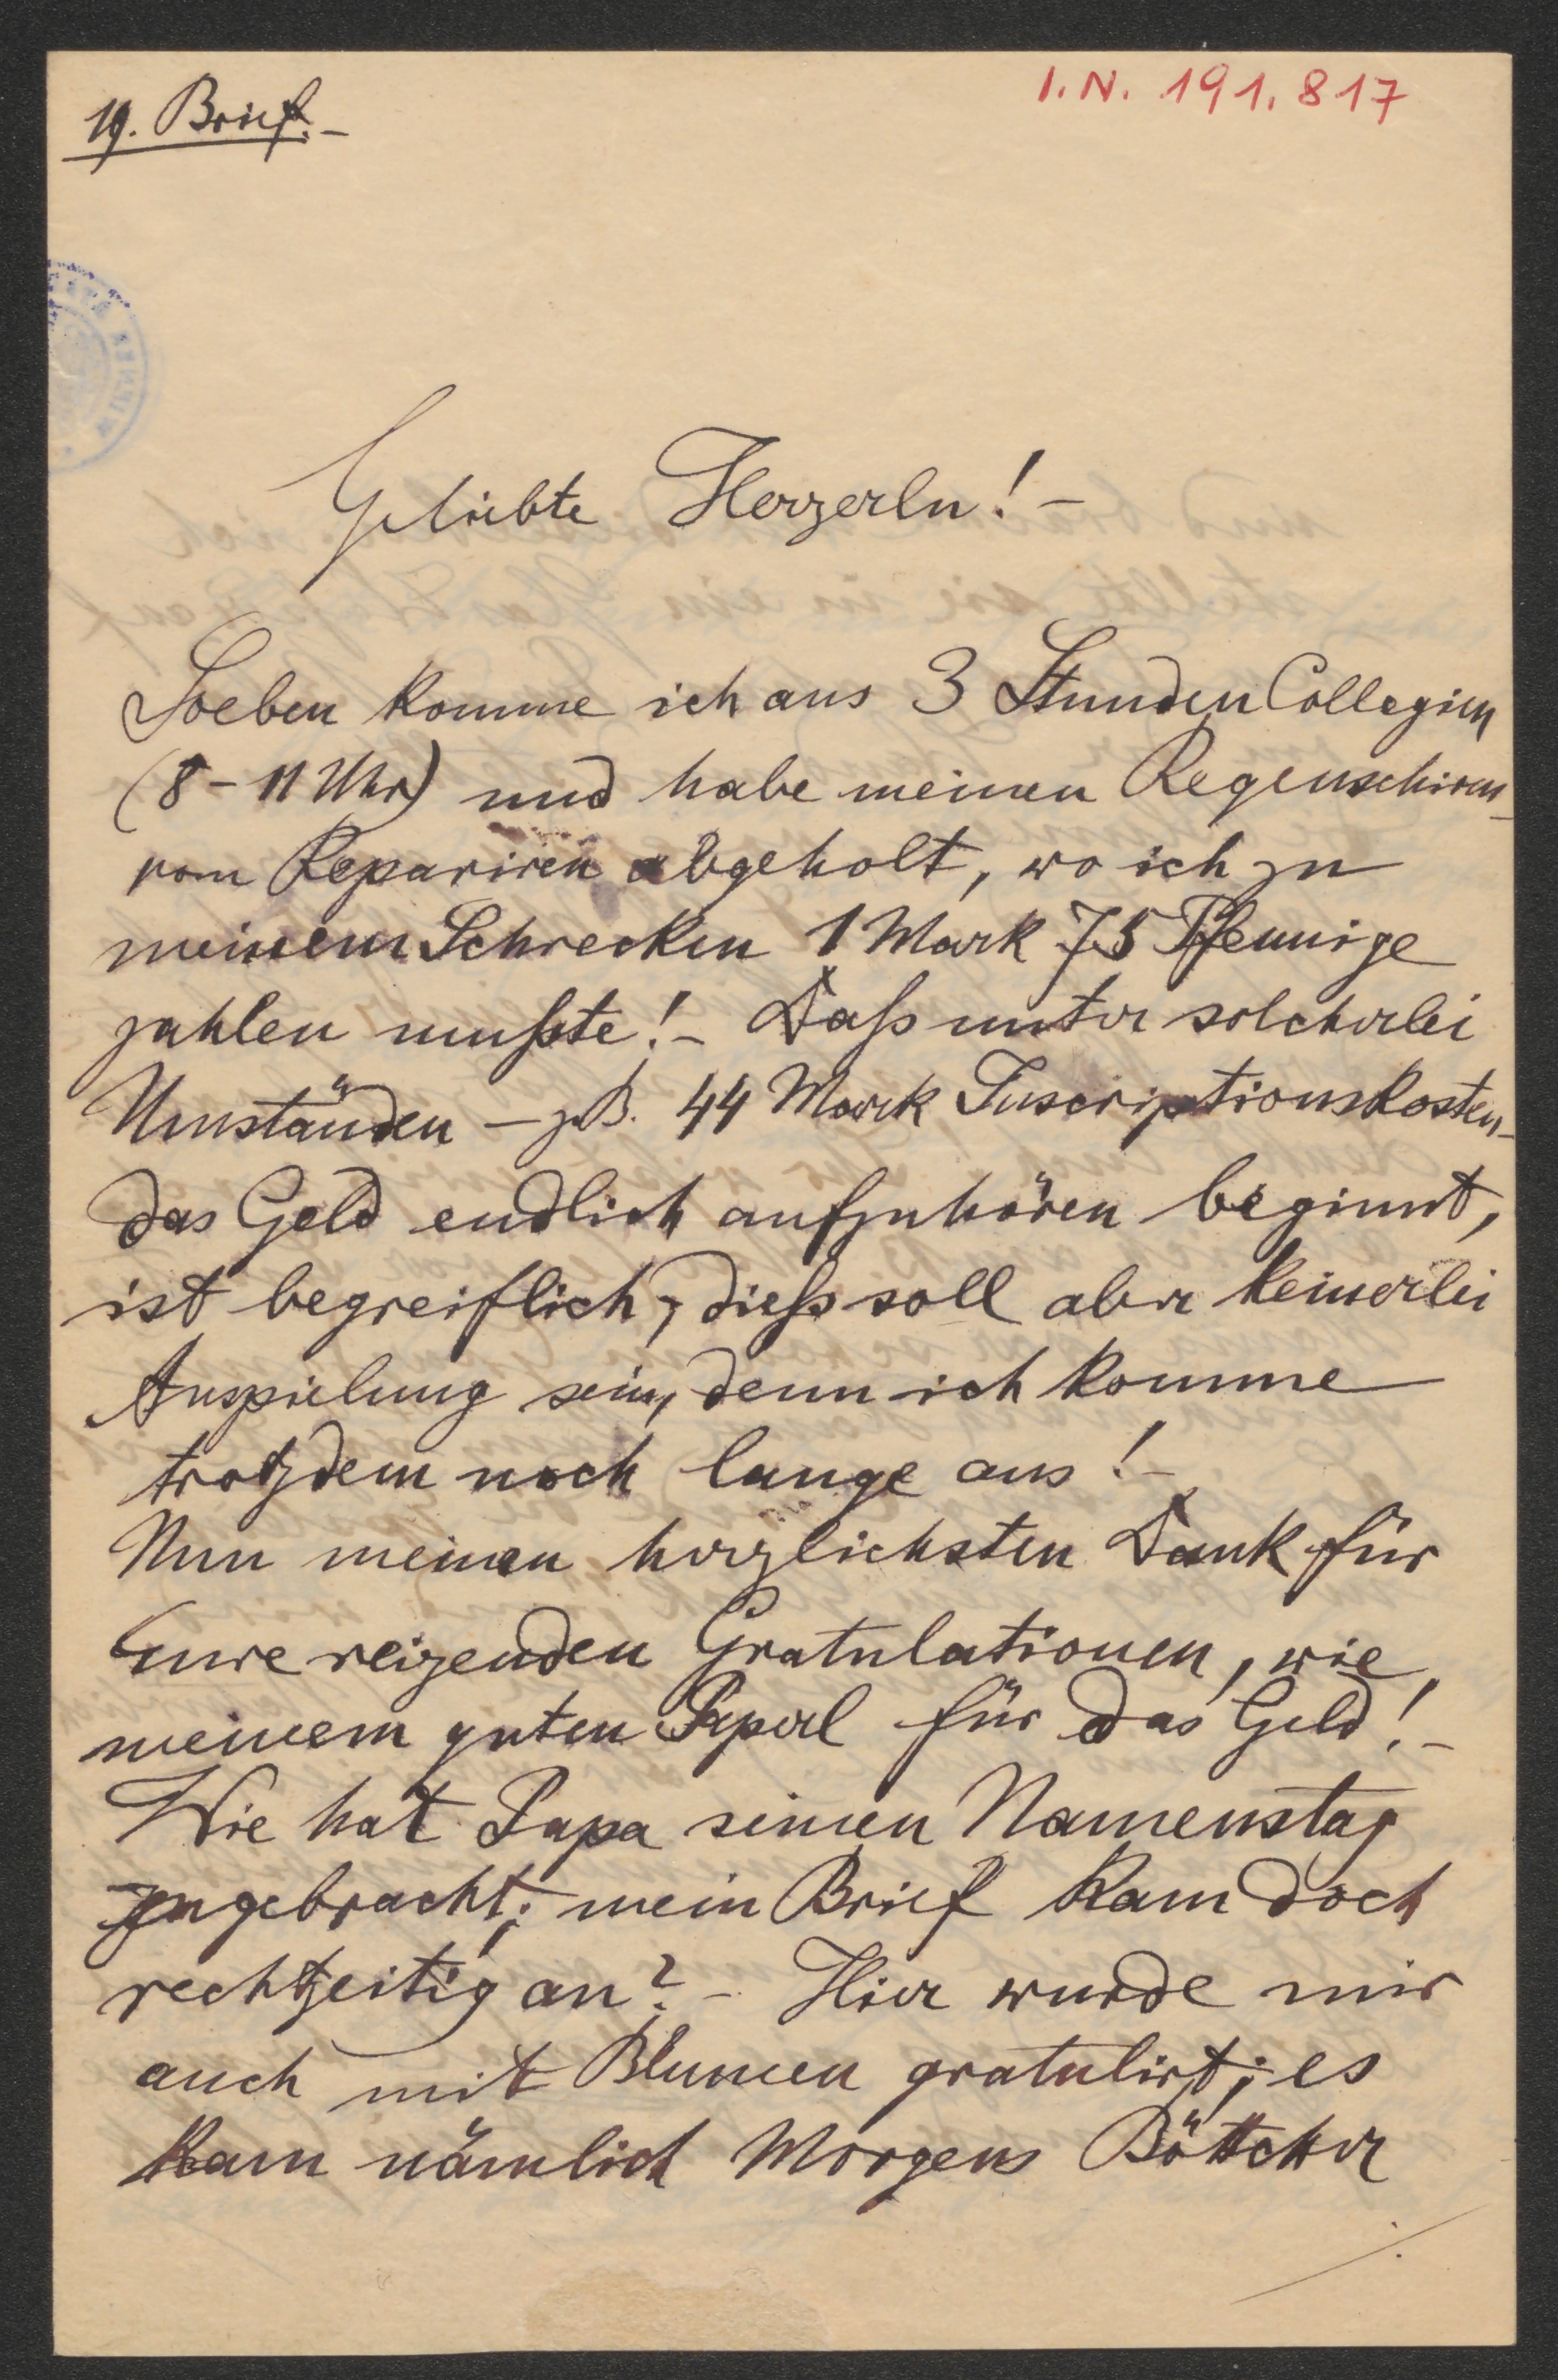 19. Brief.–
I.N. 191.817
Geliebte Herzerln! –
Soeben komme ich aus 3 Stunden Collegien
(8 – 11 Uhr) und habe meinen Regenschirm
vom Repariren abgeholt, wo ich zu
meinem Schrecken 1 Mark 75 Pfennige
zahlen mußte! – Daß unter solcherlei
Umständen – z.B. 44 Mark Inscriptionskosten –
das Geld endlich aufzuhören beginnt,
ist begreiflich, dieß soll aber keinerlei
Anspielung sein, denn ich komme
trotzdem noch lange aus! –
Nun meinen herzlichsten Dank für
Eure reizenden Gratulationen, wie
meinem guten Paperl für das Geld! –
Wie hat Papa seinen Namenstag
zugebracht; mein Brief kam doch
rechtzeitig an? – Hier wurde mir
auch mit Blumen gratulirt; es
kam nämlich Morgens Böttcher
./.